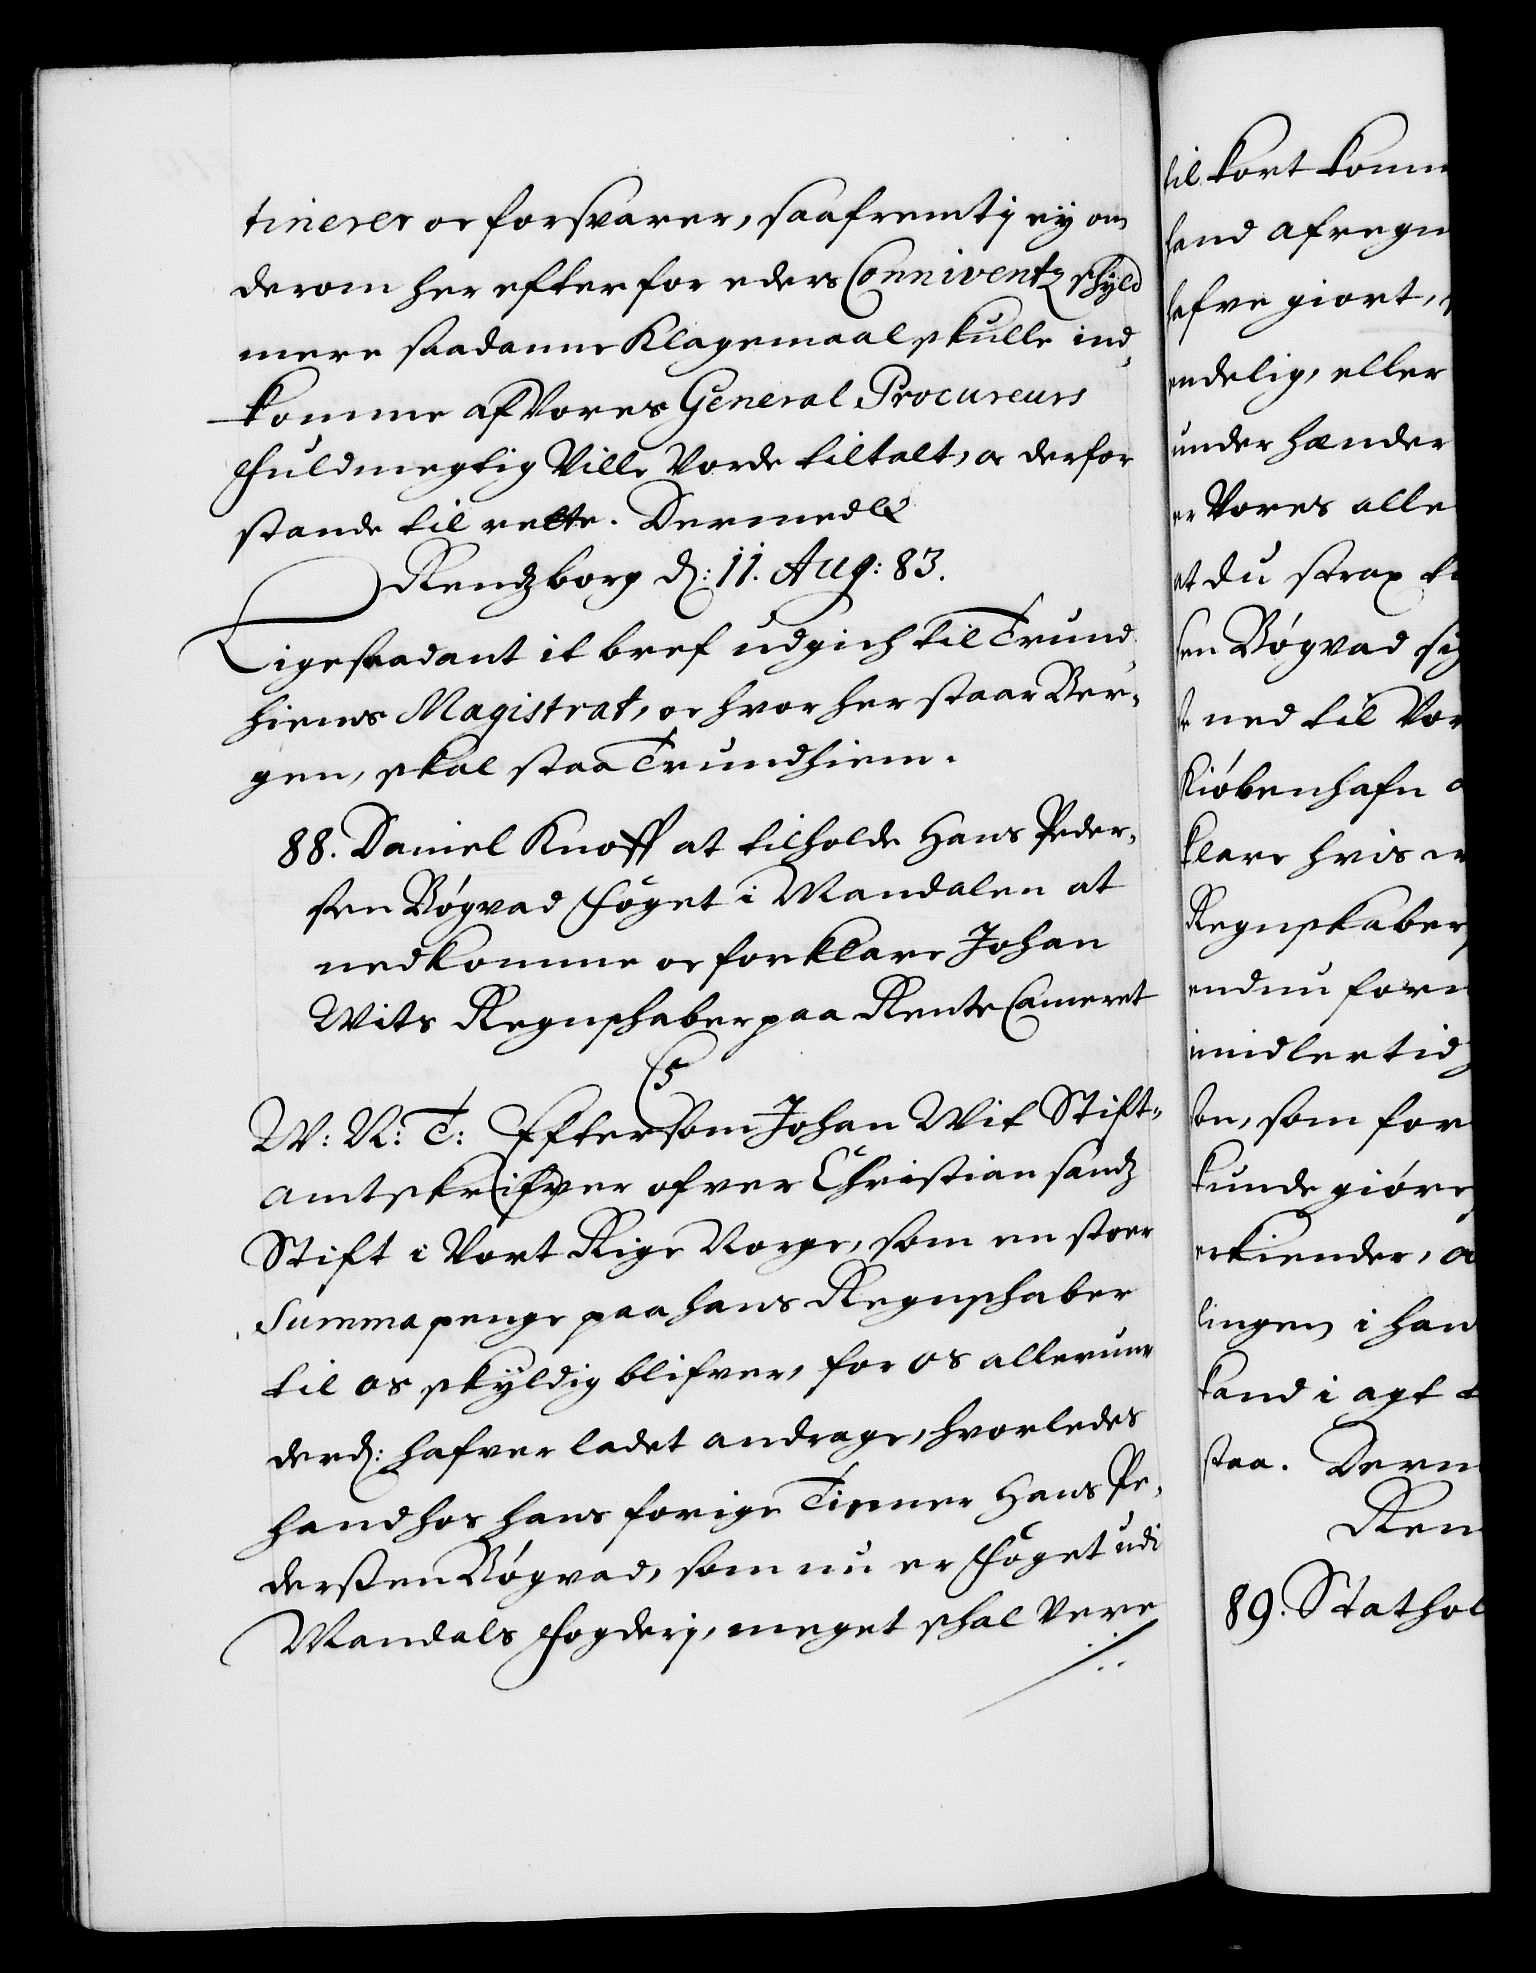 tinerer oc forsvarer, saafremt j ey om
derom her efter for eders Conniventz skyld
mere saadanne Klagemaal skulle ind,
komme af Vores General Procureurs
fuldmegtig Ville Vorde tiltalt, oc derfor
stande til rette. Dermed &
Rendzborg d: 11. Aug: 83.
Ligesaadant it bref udgich til Trund
hiems Magistrat, oc hvor her staar Ber,
gen, skal staa Trundhiem.
88. Daniel Knoff at tilholde Hans Peder,
sen Bøgvad foget i Mandalen at
nedkomme oc forklare Johan
Wits Regnschaber paa Rente Cammeret
C5
W: N: T: Eftersom Johan Wit Stift,,
amtskrifver ofver Christiansandz
Stift i Vort Rige Norge, som en stoer
Summa penge paa hans Regnschaber
til os skyldig blifver, for os allerun
derd: hafver ladet andrage, hvorledes
hand hos hans forige Tienner Hans Pe,
derßen Bøgvad, som nu er foget udi
Mandals fogderj, meget schal Vere
til kort komm
land afregn
hafve giort,
endelig, eller
under hænder
er Vores alle
at du strax ti
sen Bøgvad sig
ned til Vor
Kiøbenhafn o
klare hvis er
Regnskaber
endnu forn
imidlertid
son, som for
kunde giøre
erkiender, a
lingen i han
tand i agt
staa. Derm
Ren
89. Stathol